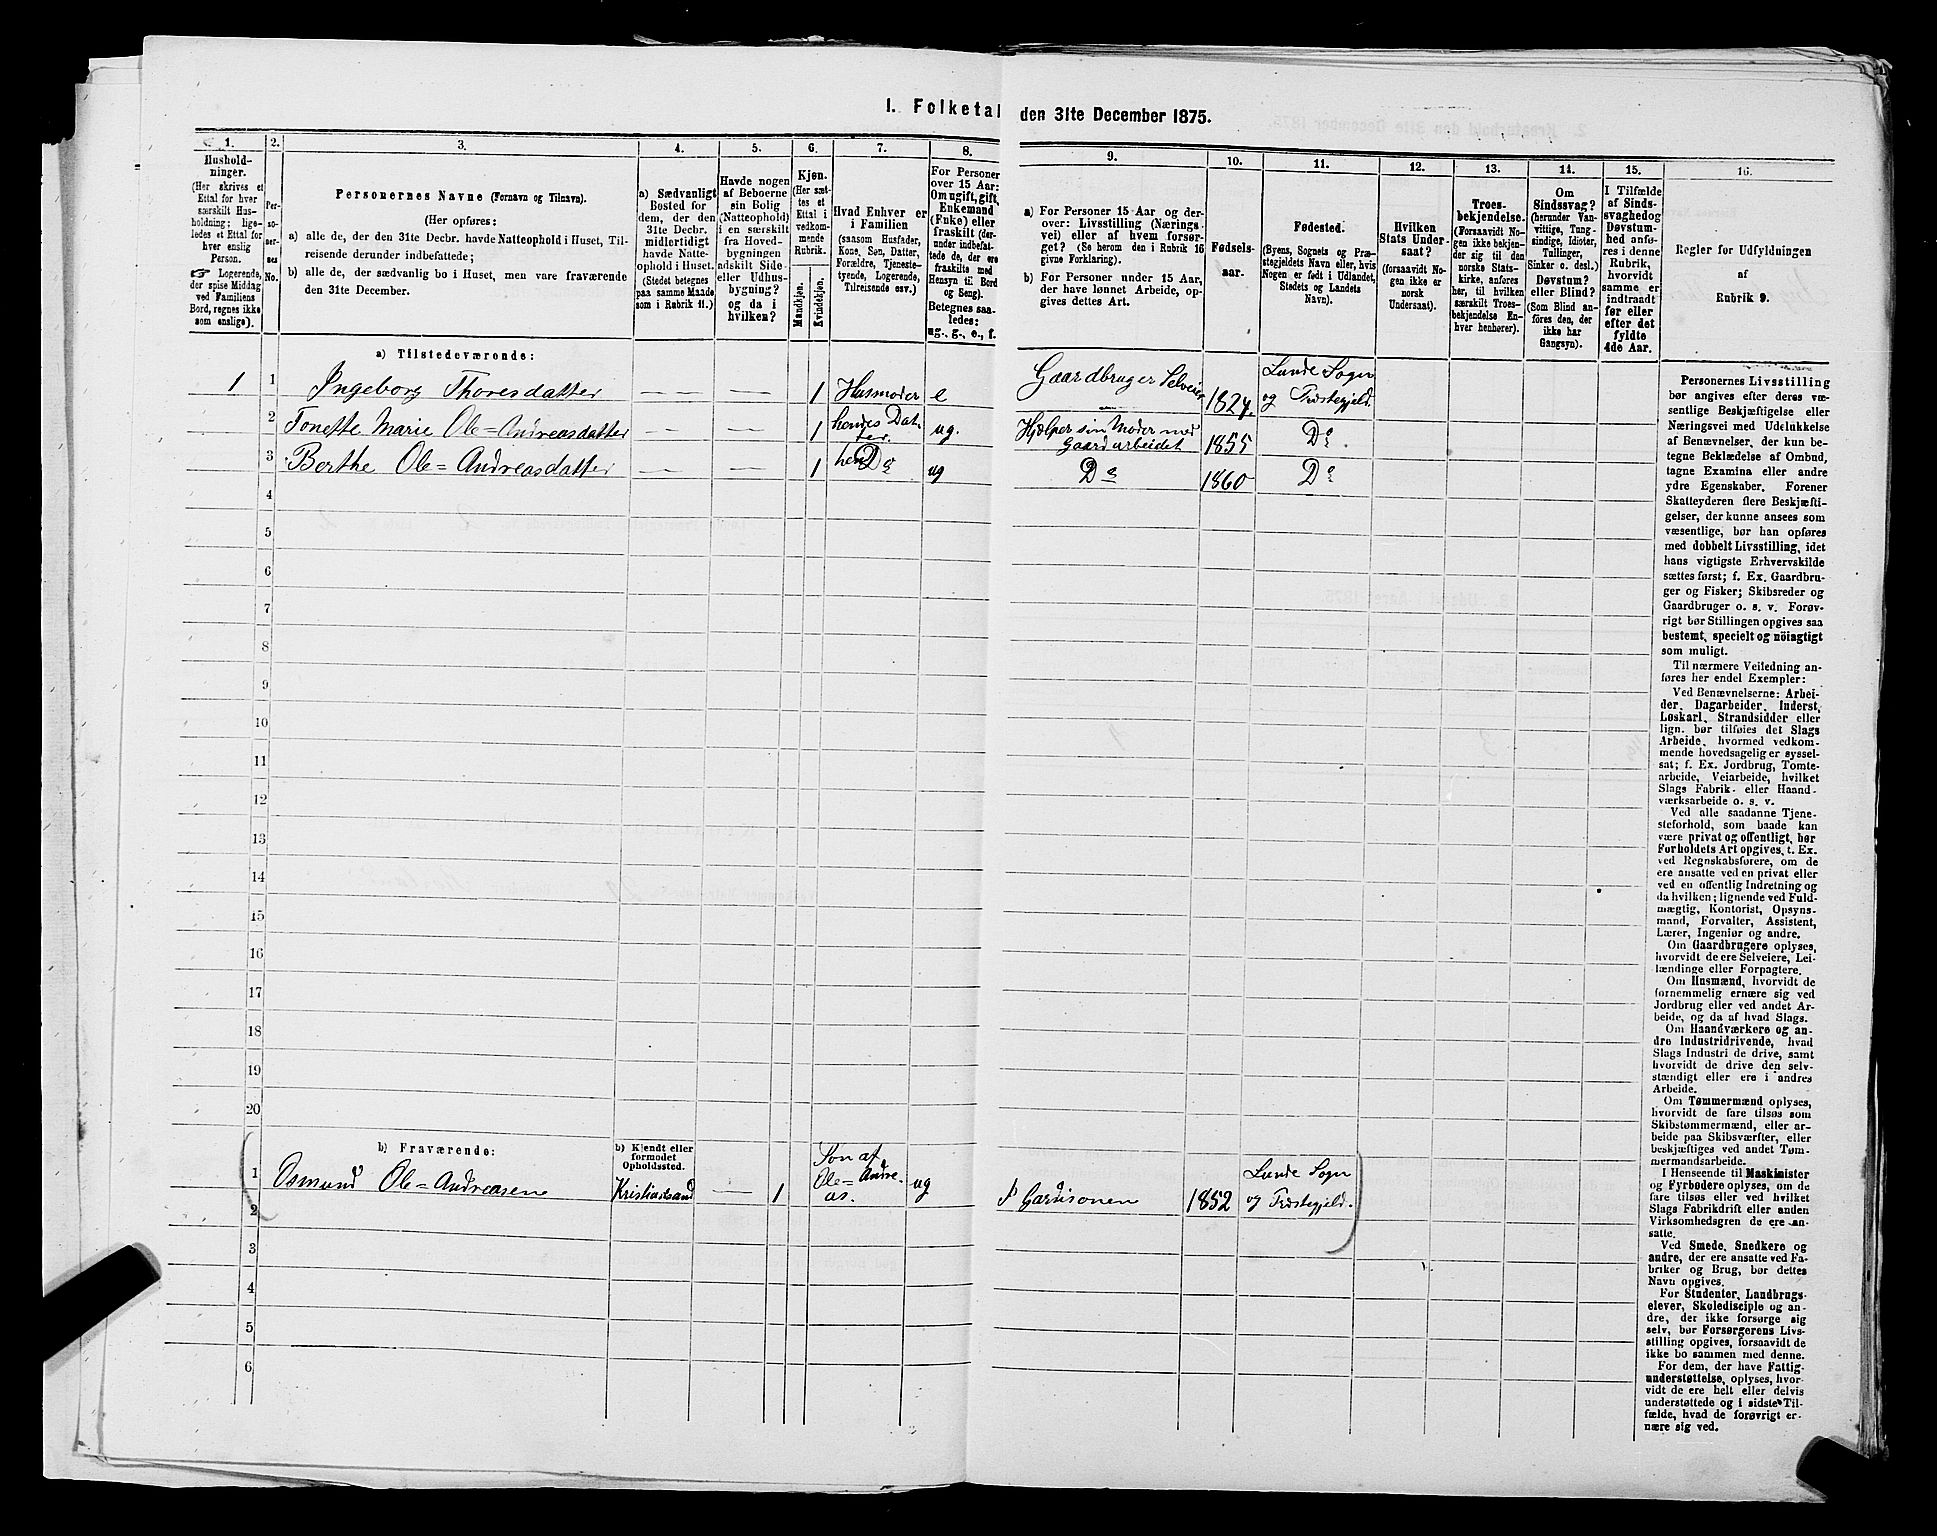 I. Folketal den 31te December 1875.
1.
Hushold-
ninger.
(Her skrives et
Ettal for hver
særskilt Hus-
holdning; lige-
ledes et Ettal for
hver enslig
Person.
☞ Logerende,
der spise Middag
ved Familiens
Bord, regnes ikke
som enslige).
2.
Per-
so-
ner-
nes
No.
3.
Personernes Navne (Fornavn og Tilnavn).
(Her opføres:
a) alle de, der den 31te Decbr. havde Natteophold i Huset, Til-
reisende derunder indbefattede;
b) alle de, der sædvanlig bo i Huset, men vare fraværende
den 31te December.
4.
a) Sædvanligt
Bosted for
dem, der den
31te Decbr.
midlertidigt
havde Natte-
ophold i Huset.
(Stedet betegnes
paa samme Maade
som i Rubrik 11.)
5.
Havde nogen
af Beboerne
sin Bolig
(Natteophold)
i en særskilt
fra Hoved-
bygningen
adskilt Side-
eller Udhus-
bygning?
og da i
hvilken?
6.
Kjøn.
(Her sæt-
tes et
Ettal i
vedkom-
mende
Rubrik.
Mandkjøn.
Kvindekjøn.
7.
Hvad Enhver er
i Familien
(saasom Husfader,
Kone, Søn, Datter,
Forældre, Tjeneste-
tyende, Logerende,
Tilreisende osv.)
8.
For Personer
over 15 Aar:
Om ugift, gift,
Enkemand
(Enke) eller
fraskilt (der-
under indbefat-
tede de, der ere
fraskilte med
Hensyn til Bord
og Seng).
Betegnes saa-
ledes:
ug., g., e., f.
9.
a) For Personer 15 Aar og der-
over: Livsstilling (Nærings-
vei) eller af hvem forsør-
get? (Se herom den i Rubrik 16
givne Forklaring).
b) For Personer under 15 Aar,
der have lønnet Arbeide, op-
gives dettes Art.
10.
Fødsels-
aar.
11.
Fødested.
(Byens, Sognets og Præ-
stegjeldets Navn eller, hvis
Nogen er født i Udlandet,
Stedets og Landets
Navn).
12.
Hvilken
Stats Under-
saat?
(forsaavidt No-
gen ikke er
norsk
Undersaat).
13.
Troes-
bekjendelse.
(Forsaavidt No-
gen ikke bekjen-
der sig til den
norske Stats-
kirke, anføres
her, til hvilken
særskilt Troes-
bekjendelse En-
hver henhører).
14.
Om
Sindssvag?
(herunder Van-
vittige, Tung-
sindige, Idioter,
Tullinger,
Sinker o. desl.)
Døvstum?
eller Blind?
(Som Blind an-
føres den, der
ikke har
Gangsyn).
15.
I Tilfælde
af Sinds-
svaghedog
Døvstum-
hed anfø-
res i denne
Rubrik,
hvorvidt
samme er
indtraadt
før eller
efter det
fyldte
4de Aar.
16.
Regler for Udfyldningen
af
Rubrik 9.
a) Tilstedeværende:
1 1 Ingeborg Thoresdatter — — 1 Husmoder e Gaardbruger Selveier 1824. Lunde Sogn og Præstegjeld.
2 Tonette Marie Ole=Andreasdatter — — 1 hendes Datter. ug. Hjælper sin Moder med Gaardarbeidet 1855 Do.
3 Berthe Ole=Andreasdatter — — 1 Do ug Do 1860 Do
4
5
6
7
8
9
10
11
12
13
14
15
16
17
18
19
20
b) Fraværende:
b) Kjendt eller
formodet
Opholdssted.
1 Osmund Ole=Andreasen Kristiansand — 1 Søn af Ole=Andreas. ug Gardisonen 1852 Lunde Sogn og Præstegjeld.
2
3
4
5
6
Personernes Livsstilling
bør angives efter deres væ-
sentlige Beskjæftigelse eller
Næringsvei med Udelukkelse
af Benævnelser, der kun be-
tegne Beklædelse af Ombud,
tagne Examina eller andre
ydre Egenskaber. Forener
Skatteyderen flere Beskjæfti-
gelser, der kunne ansees som
væsentlige, bør han opføres
med dobbelt Livsstilling, idet
hans vigtigste Erhvervskilde
sættes først; f. Ex. Gaardbru-
ger og Fisker; Skibsreder og
Gaardbruger o. s. v. Forøv-
rigt bør Stillingen opgives saa
bestemt, specielt og nöiagtigt
som muligt.
Til nærmere Veiledning an-
føres her endel Exempler:
Ved Benævnelserne: Arbei-
der, Dagarbeider, Inderst,
Løskarl, Strandsidder eller
lign. bør tilføies det Slags
Arbeide, hvormed vedkom-
mende hovedsagelig er syssel-
sat; f. Ex. Jordbrug, Tomte-
arbeide, Veiarbeide, hvilket
Slags Fabrik- eller Haand-
værksarbeide o. s. v.
Ved alle saadanne Tjene-
steforhold, som baade kan
være privat og offentligt, bør
Forholdets Art opgives, t. Ex.
ved Regnskabsførere, om de
ere ansatte ved en privat eller
ved en offentlig Indretning og
da hvilken; lignende ved Fuld-
mægtig, Kontorist, Opsyns-
mand, Forvalter, Assistent,
Lærer, Ingeniør og andre.
Om Gaardbrugere oplyses,
hvorvidt de ere Selveiere, Lei-
lændinge eller Forpagtere.
Om Husmænd, hvorvidt de
fornemmelig ernære sig ved
Jordbrug eller ved andet Ar-
beide, og da af hvad Slags.
Om Haandværkere og an-
dre Industridrivende, hvad
Slags Industri de drive, samt
hvorvidt de drive den selv-
stændigt eller ere i andres
Arbeide.
Om Tømmermænd oplyses,
hvorvidt de fare tilsøs som
Skibstømmermænd, eller ar-
beide paa Skibsværfter, eller
beskjæftiges ved andet Tøm-
mermandsarbeide.
I Henseende til Maskinister
og Fyrbødere oplyses, om de
fare tilsøs eller ved hvilket
Slags Fabrikdrift eller anden
Virksomhedsgren de ere an-
satte.
Ved Smede, Snedkere og
andre, der ere ansatte ved Fa-
briker og Brug, bør dettes
Navn opgives.
For Studenter, Landbrugs-
elever, Skoledisciple og an-
dre, der ikke forsørge sig
selv, bør Forsørgerens Livs-
stilling opgives, forsaavidt de
ikke bo sammen med denne.
For dem, der have Fattig-
understøttelse, oplyses, hvor-
vidt de ere helt eller delvis
understøttede og i sidste Til-
fælde, hvad de forøvrigt er-
nære sig ved.